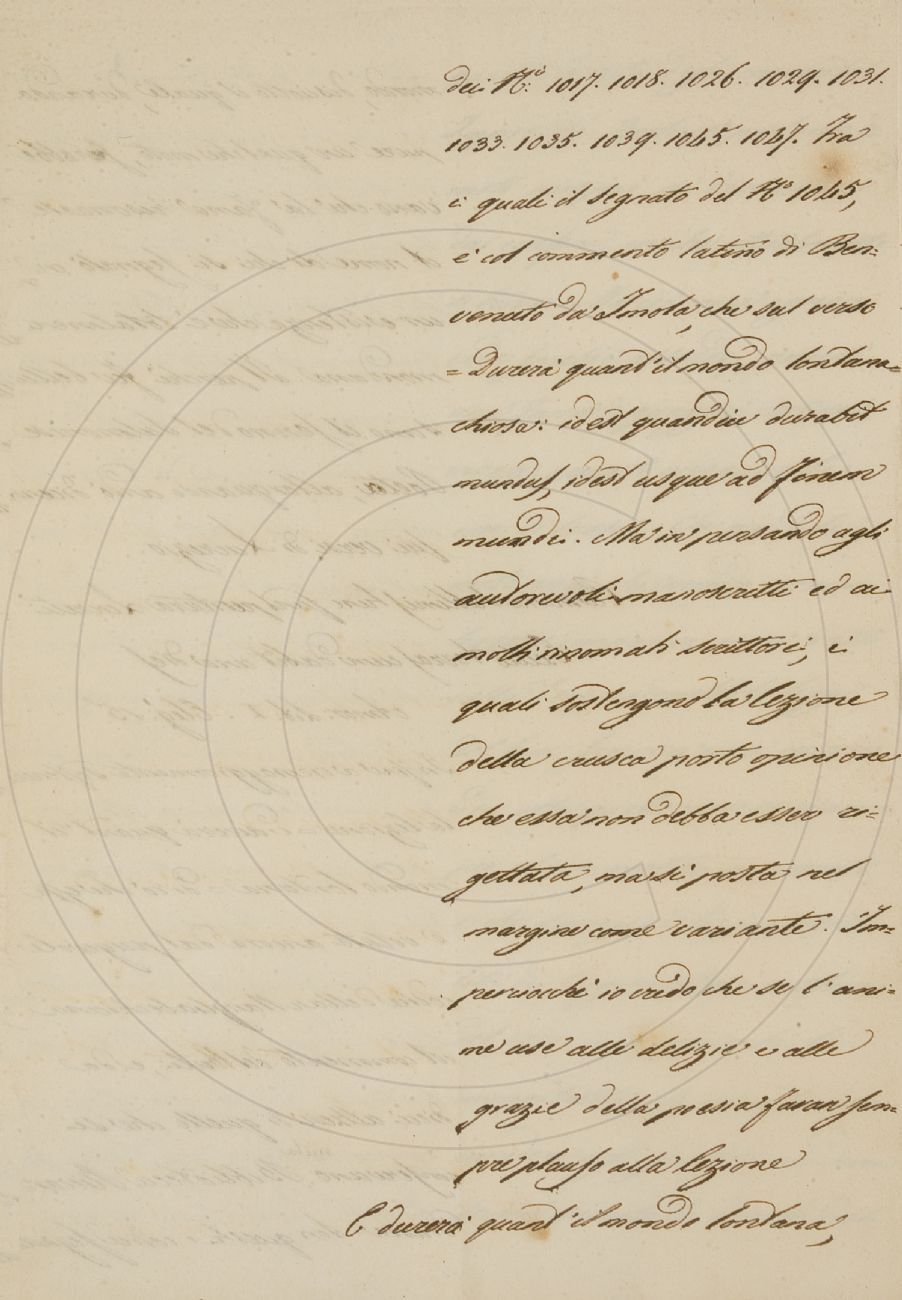 dei N.i 1017. 1018. 1026. 1029. 1031.
1033. 1035. 1039. 1045. 1047. Fra
i quali il segnato del N.o 1045,
è col commento latino di Ben=
venuto da Imola, che sul verso
= Durerà quant'il mondo lontana=
chiosa: idest quandiu durabit
mundus, idest usque ad finem
mundi. Ma in pensando agli
autorevoli manoscritti ed ai
molti rinomati scrittori, i
quali sostengono la lezione
della crusca porto opinione
che essa non debba esser ri=
gettata, ma sì posta nel
margine come variante. Im=
perciocchè io credo che se l'ani=
me use alle delizie e alle
grazie della poesia faran sem=
pre plauso alla lezione
E durerà quant'il mondo lontana,